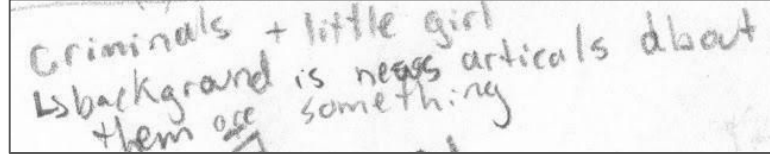 Criminals + little girl
↳background is news articals about
them or something